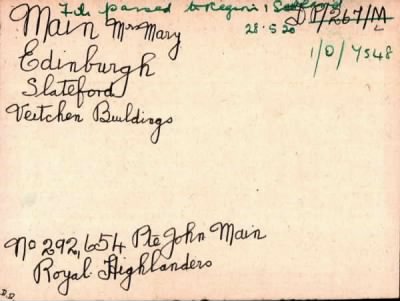 File passed to Regina 1 
28.5.20
DF/267/M
L
Main Mrs Mary
1/0/7548
Edinburgh
Slateford
Veitchen Buildings
No 292,654 Pte John Main
Royal Highlanders
D.D.